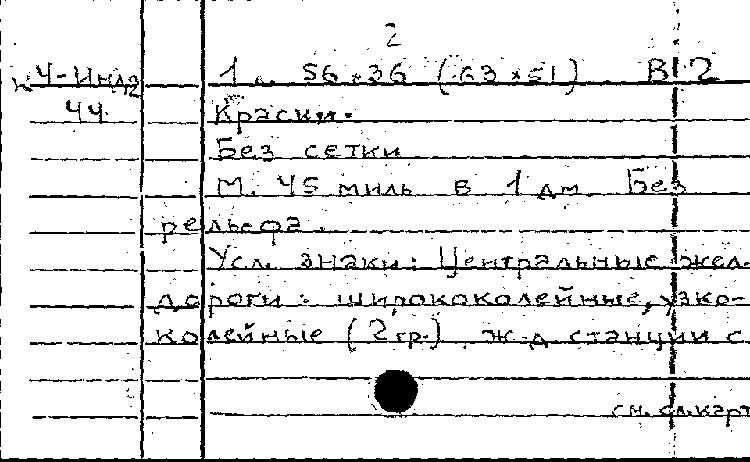 2
К 4-Инд2 1 л. 56×36 (63×51). В12
44. Краски.
Без сетки
М. 45 миль в 1 дм. Без
рельефа.
Усл. знаки: Центральные жел.
дороги: ширококолейные, узко-
колейные (2 гр.), ж.д. станции с
см. сл. карт